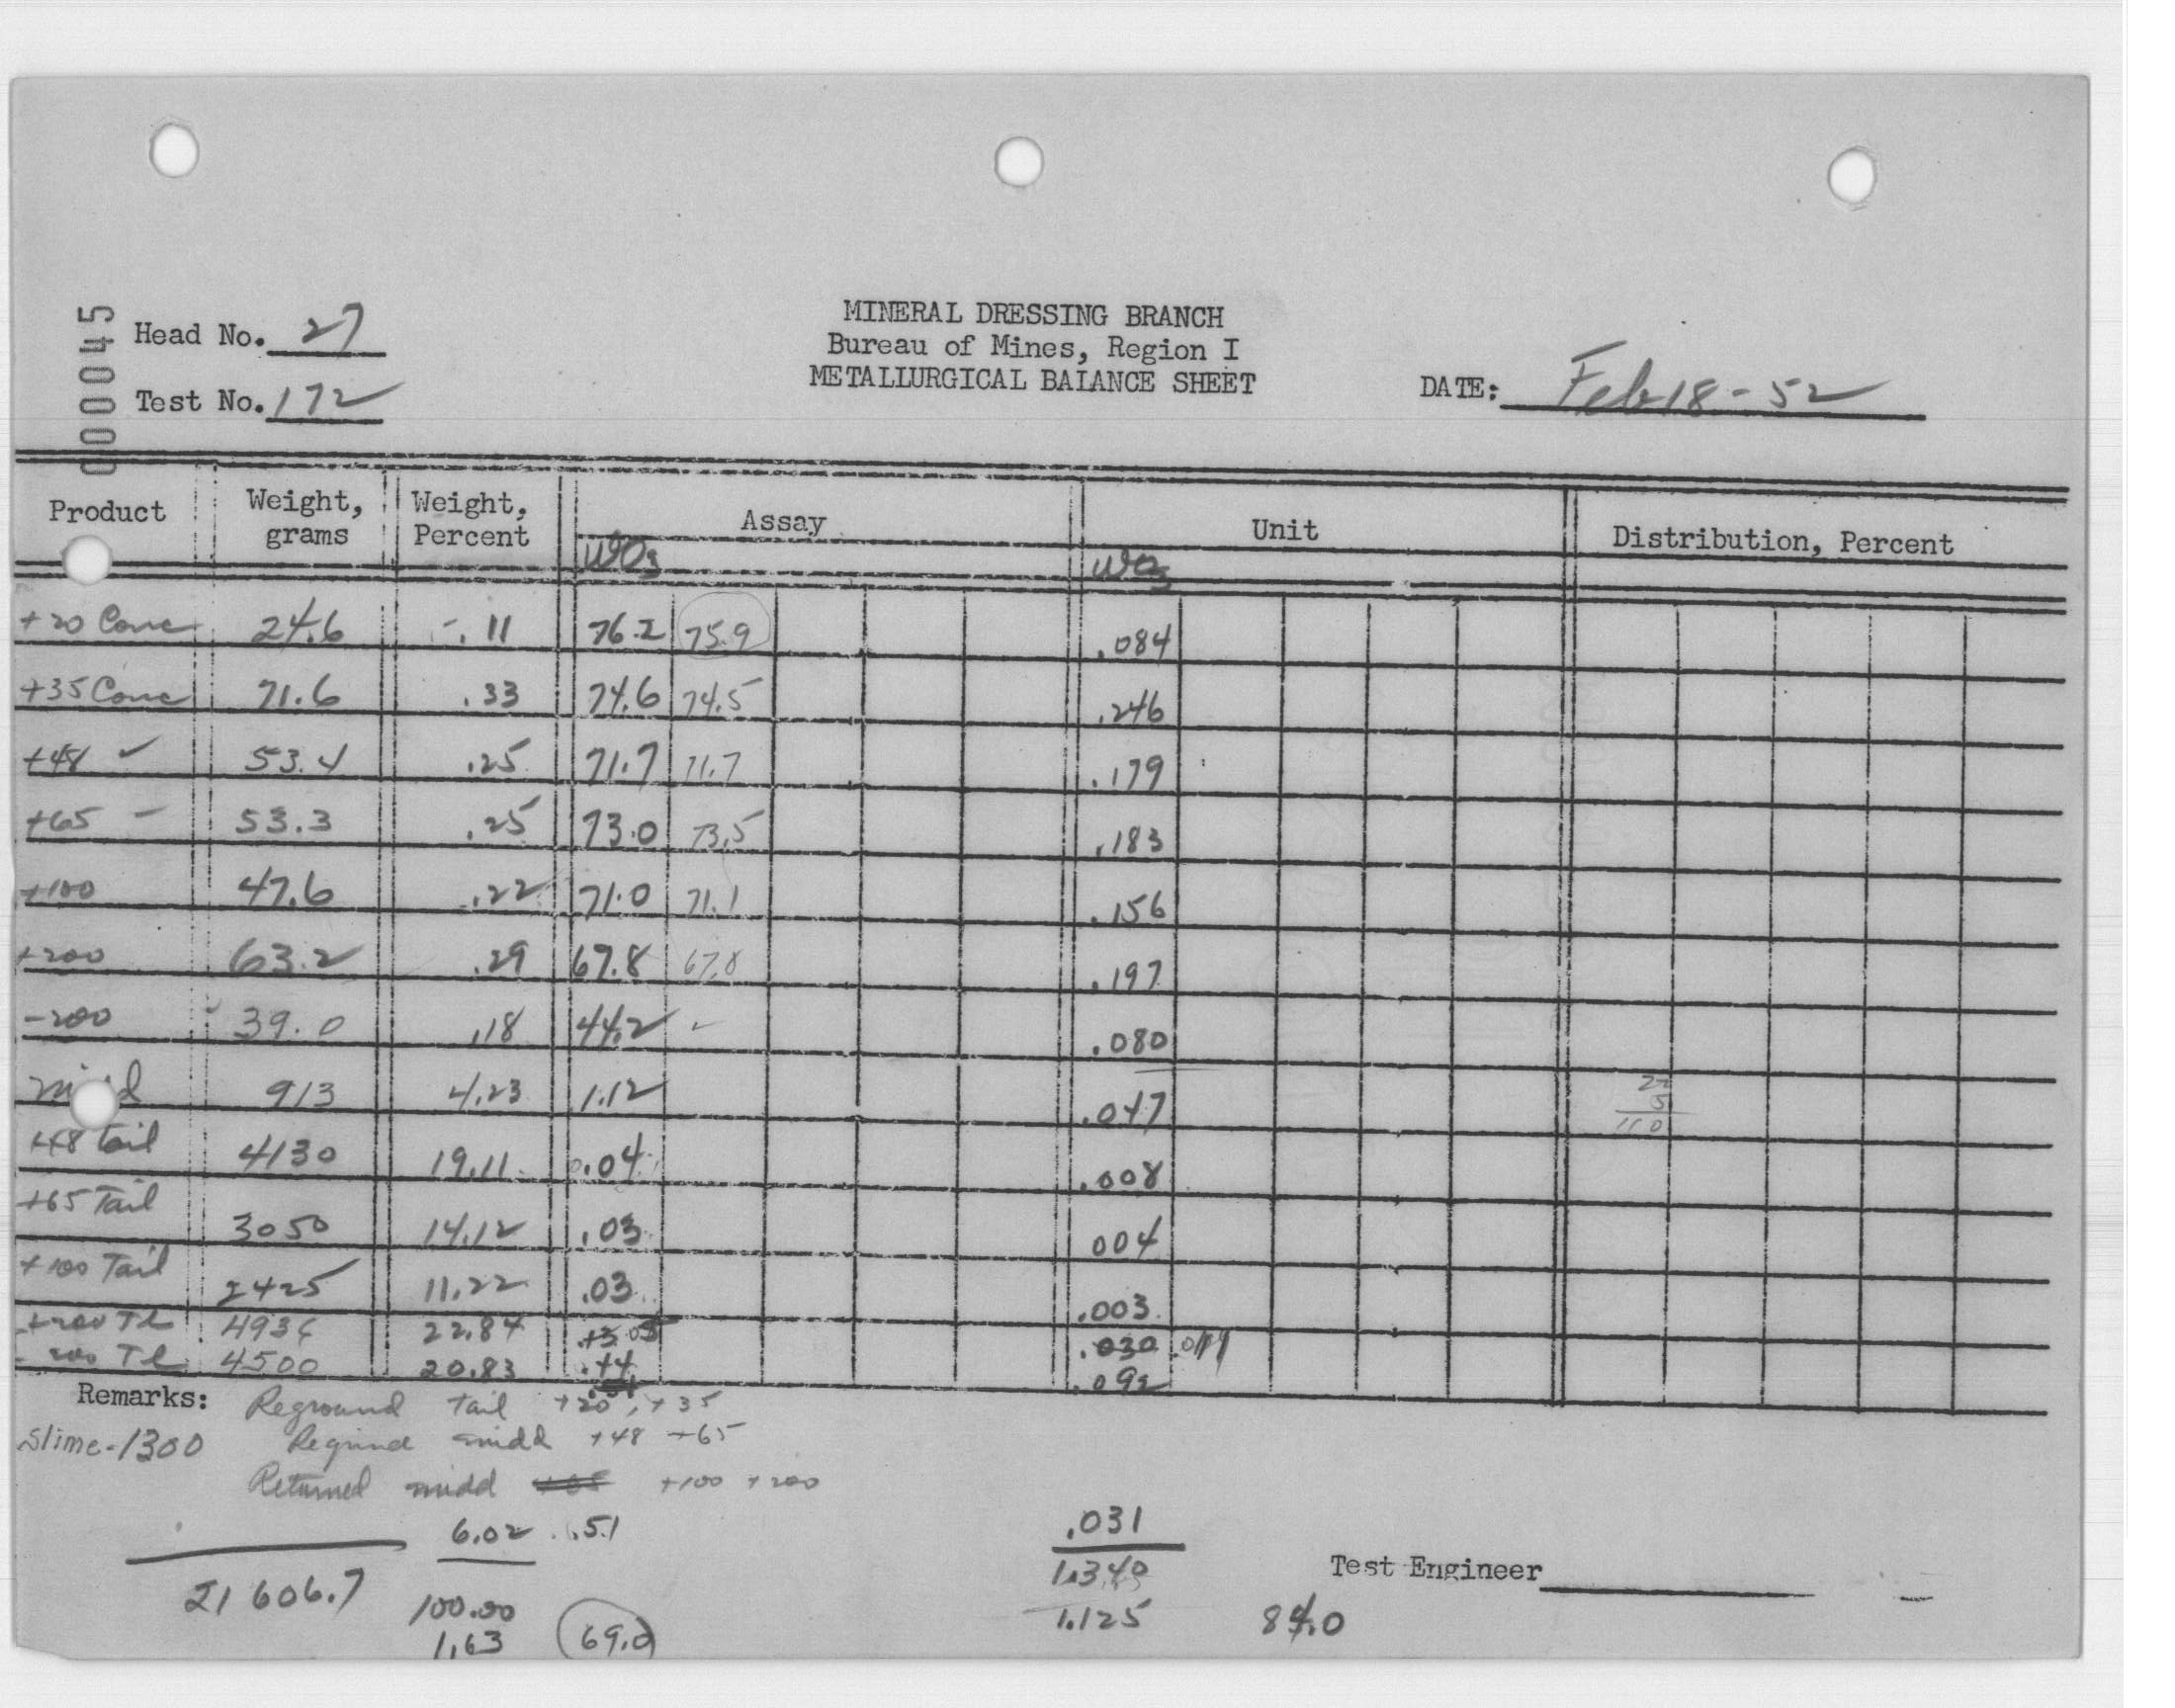 000045
Head No. 27
Test No. 172
MINERAL DRESSING BRANCH
Bureau of Mines, Region I
METALLURGICAL BALANCE SHEET
DATE: Feb 18-52
Product Weight, grams Weight, Percent Assay Unit Distribution, Percent
WO3 WO3
+20 Conc 24.6 .11 76.2 75.9 .084
+35 Conc 71.6 .33 74.6 74.5 .246
+48 53.4 .25 71.7 71.7 .179
+65 53.3 .25 73.0 73.5 .183
+100 47.6 .22 71.0 71.1 .156
+200 63.2 .29 67.8 67.8 .197
-200 39.0 .18 44.2 .080
midd 913 4.23 1.12 .047
+48 tail 4130 19.11 0.04 .008
+65 Tail 3050 14.12 .03 004
+100 Tail 2425 11.22 .03 .003
+200 Tl 4936 22.84 .030
-200 Tl 4500 20.83 .44 .092
Remarks: Reground tail +20, +35
Slime-1300 Regrind midd +48 +65
Returned midd +100 +200
6.02 .51 .031
21606.7 100.00 1.340
Test Engineer
1.63 69.0 1.125 84.0